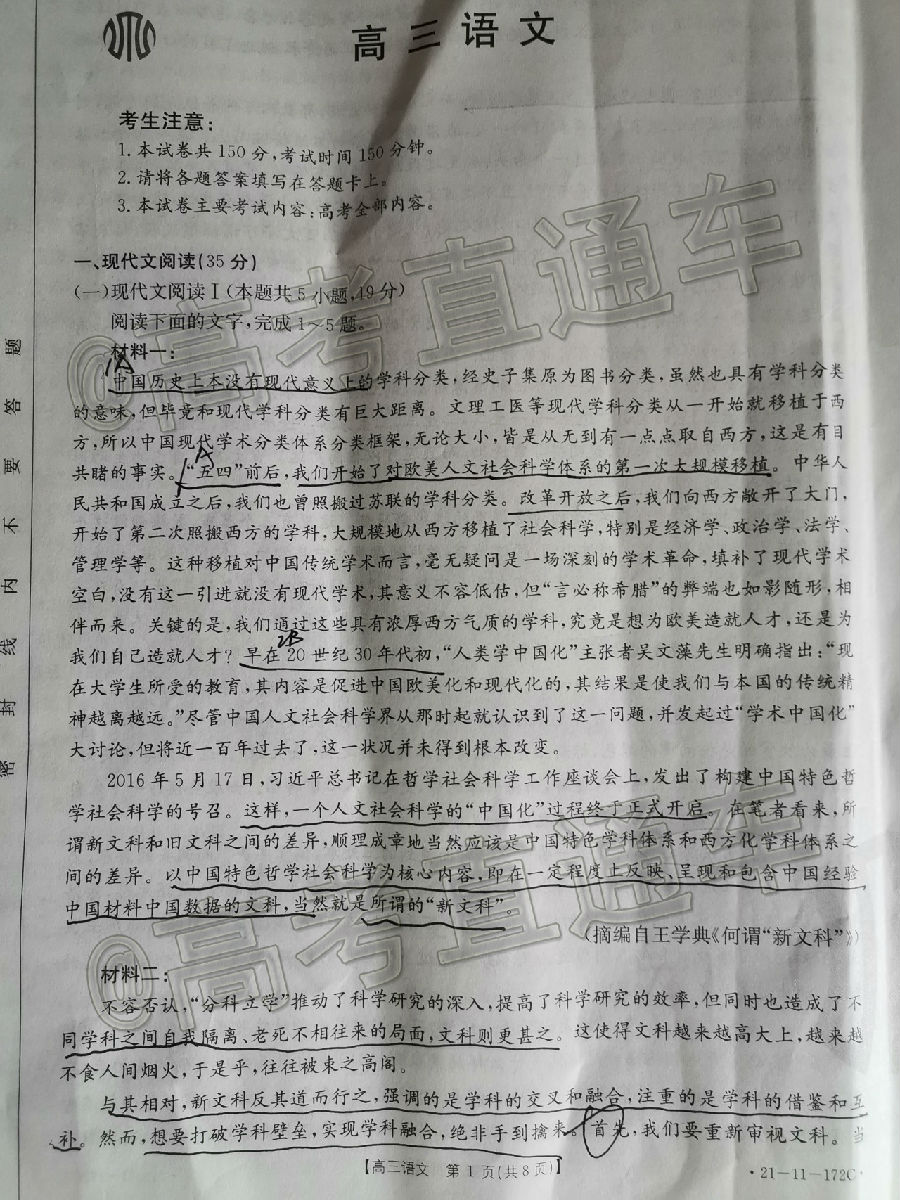 高三语文
考生注意：
1.本试卷共150分,考试时间150分钟。
2.请将各题答案填写在答题卡上。
3.本试卷主要考试内容:高考全部内容。
一、现代文阅读(35分)
(一)现代文阅读Ⅰ(本题共5小题,19分)
阅读下面的文字,完成1～5题。
材料一：
1A
中国历史上本没有现代意义上的学科分类,经史子集原为图书分类,虽然也具有学科分类
的意味,但毕竟和现代学科分类有巨大距离。文理工医等现代学科分类从一开始就移植于西
方,所以中国现代学术分类体系分类框架,无论大小,皆是从无到有一点点取自西方,这是有目
A
共睹的事实。“五四”前后,我们开始了对欧美人文社会科学体系的第一次大规模移植。中华人
民共和国成立之后,我们也曾照搬过苏联的学科分类。改革开放之后,我们向西方敞开了大门,
开始了第二次照搬西方的学科,大规模地从西方移植了社会科学,特别是经济学、政治学、法学、
管理学等。这种移植对中国传统学术而言,毫无疑问是一场深刻的学术革命,填补了现代学术
空白,没有这一引进就没有现代学术,其意义不容低估,但“言必称希腊”的弊端也如影随形,相
伴而来。关键的是,我们通过这些具有浓厚西方气质的学科,究竟是想为欧美造就人才,还是为
2B
我们自己造就人才?早在20世纪30年代初,“人类学中国化”主张者吴文藻先生明确指出:“现
在大学生所受的教育,其内容是促进中国欧美化和现代化的,其结果是使我们与本国的传统精
神越离越远。”尽管中国人文社会科学界从那时起就认识到了这一问题,并发起过“学术中国化”
大讨论,但将近一百年过去了,这一状况并未得到根本改变。
2016年5月17日,习近平总书记在哲学社会科学工作座谈会上,发出了构建中国特色哲
学社会科学的号召。这样,一个人文社会科学的“中国化”过程终于正式开启。在笔者看来,所
谓新文科和旧文科之间的差异,顺理成章地当然应该是中国特色学科体系和西方化学科体系之
间的差异。以中国特色哲学社会科学为核心内容,即在一定程度上反映、呈现和包含中国经验
中国材料中国数据的文科,当然就是所谓的“新文科”。
(摘编自王学典《何谓“新文科”》)
材料二：
不容否认,“分科立学”推动了科学研究的深入,提高了科学研究的效率,但同时也造成了不
同学科之间自我隔离、老死不相往来的局面,文科则更甚之。这使得文科越来越高大上,越来越
不食人间烟火,于是乎,往往被束之高阁。
与其相对,新文科反其道而行之,强调的是学科的交叉和融合,注重的是学科的借鉴和互
补。然而,想要打破学科壁垒,实现学科融合,绝非手到擒来。首先,我们要重新审视文科。当
【高三语文 第1页(共8页)】
·21-11-172C·
密封线内不要答题
@高考直通车
@高考直通车